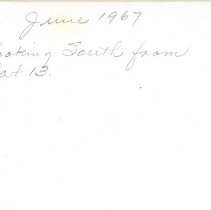 June 1967
Looking South from
Lot 13.